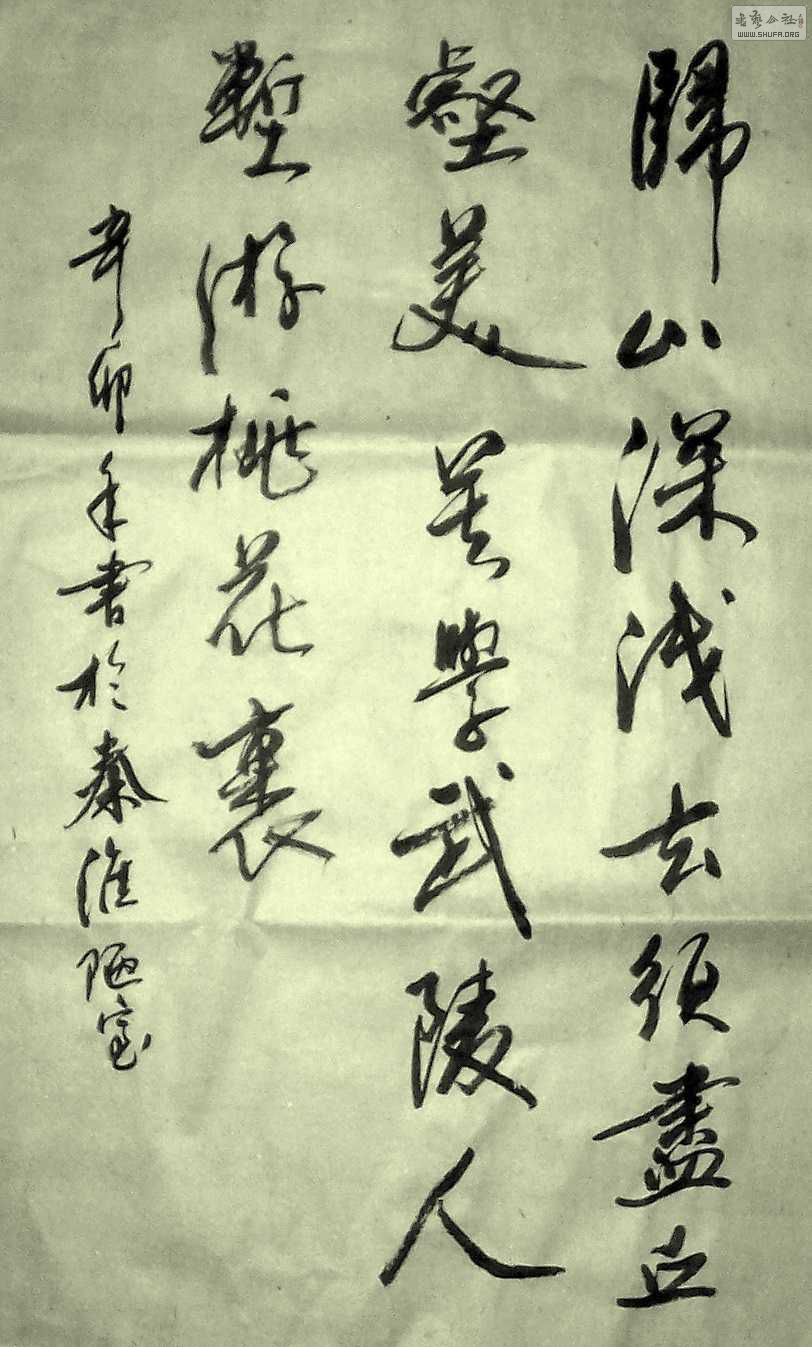 歸山深浅去須盡丘
壑美莫學武陵人
蹔游桃花裏
辛卯年書於秦淮陋室
書藝公社
WWW.SHUFA.ORG